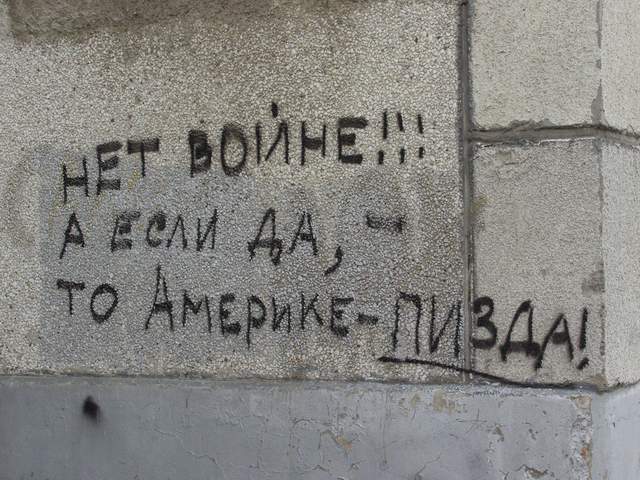 НЕТ ВОЙНЕ!!!
А ЕСЛИ ДА, -
ТО АМЕРИКЕ-ПИЗДА!